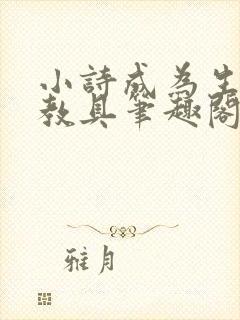 小詩成為生
教具筆趣閣
雅月